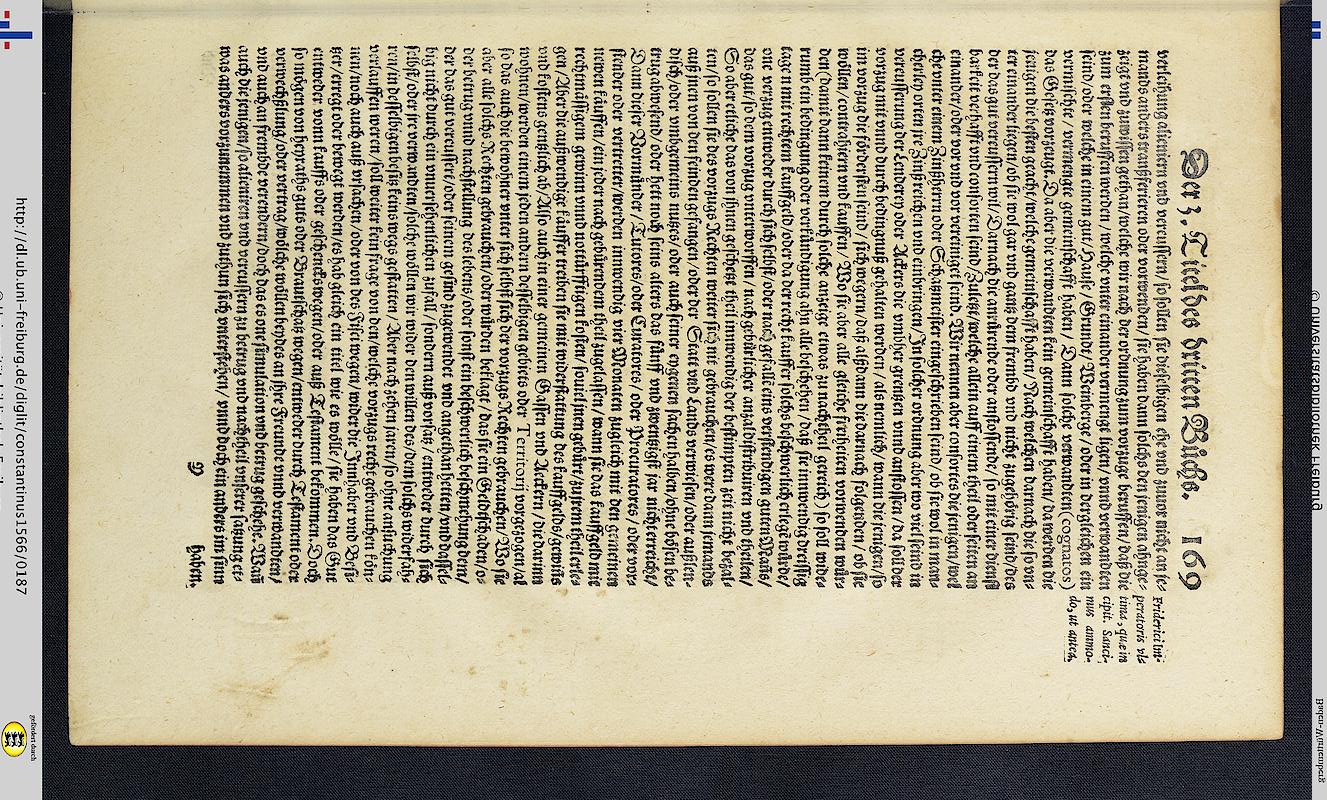 Der 3. Titel des dritten Buchs. 169
verleihung alieniern vnd vereussern / so sollen sie dieselbigen ehe vnd zuuor nicht an je-
mands anders transsferieren oder vorwenden / sie haben dann solchs den jenigen ange-
zeigt vnd zuwissen gethan / welche wir nach der ordnung zum vorzuge beruffen / daß die
zum ersten beruffen werden / welche vnter einander vermengt ligen / vnnd verwandten
seind / oder welche in einem gut / Hause / Grunde / Weinberge / oder in dergleichen ein
vermischte / vermengte gemeinschafft haben / Dann solche verwandten (cognatos)
das Gesetz vorzeugt. Da aber die verwandten kein gemeinschafft haben / da werden die
jenigen die besten geacht / welche gemeinschafft haben / Nach welchen darnach die so vn-
ter einander ligen / ob sie wol gar vnd gantz dem frembd vnd nicht zugehörig seind / des
der das gut vereussern wil / Darnach die anrürende oder anstossende / so mit einer dienst
barkeit verhafft vnd consorten seind / Zuletst / welche allein auff einem theil oder seiten an
einander / oder vor vnd vor vereiniget seind. Wir nennen aber consortes die jenigen / wel
che vnter einem Zinßherrn oder Schatzmeister eingeschrieben seind / ob sie wol in man-
cherley orten jre Zinß reichen vnd einbringen / In solcher ordnung aber wo viel seind in
vereusserung der Lendery oder Ackers die vmbher grentzen vnnd anstossen / da soll der
vorzug mit vnnd durch bedingnuß gehalten werden / als nemlich / wann die jenigen / so
in vorzug die fördersten seind / sich wegern / daß alßdann die darnach folgenden / ob sie
wöllen / contrahiern vnd kauffen / Wo sie aber alle gleiche freiheiten vorwenden wür-
den (damit dann keinem durch solche anzeige etwas zu nachtheil gereich) so soll wide-
rumb ein bedingung oder verkündigung ahn alle beschehen / daß sie innwendig dreissig
tage n mit rechtem kauffgeld / oder da der recht kauffer solchs beschwerlich erlegt würde /
one verzug entweder durch sich selbst / oder nach gefallen eins verstendigen guten Mans /
das gut / so dem vorzug vnterworffen / nach gebürlicher anzal distribuiren vnd theilen /
So aber etliche das von ihnen geschetzt theil innwendig der bestimpten zeit nicht bezal-
ten / so sollen sie des vorzugs Rechten weiter sich nit gebrauchen / es were dann jemands
auß jnen von den feinden gefangen / oder der Statt vnd Lands verwisen / oder außlen-
disch / oder vmb gemeins nutzes / oder auch seiner eygenen sachen halben / ohne bösen be-
trug abwesend / oder hett noch seins alters das fünff vnd zwentzigst jar nicht erreicht /
Dann dieser Vormünder / Tutores / oder Curatores / oder Procuratores / oder vor-
stender oder vertretter / werden innwendig vier Monaten zugleich mit den gemeinen
newen käuffen / ein jeder nach gebürendem theil zugelassen / wann sie das kauffgeld mit
rechtmässigem gewinn vnnd notdrüfftigen kosten / souiel jnen gebürt / zu jrem theil erle-
gen / Aber die außwendige käuffer treiben sie mit widerstattung des kauffgelds / gewins
vnd kostens gentzlich ab / Also auch in einer gemeinen Gassen vnd Ackern / die darinn
wohnen / werden einem jeden ausserhalb desselbigen gebiets oder Territorij vorgezogen / al
so das auch die bewohner vnter sich selbst sich der vorzugs Rechten gebrauchen / Wo sie
aber alle solchs Rechten gebrauchen / oder würden beklagt / das sie ein Geldschaden / o-
der betrug vnnd nachstellung des lebens / oder sonst ein beschwerlich beschmehung dem /
der das gut vereussert / oder seinem gesind zugewendet vnd angethan hetten / vnd dassel-
big nicht durch ein vnuersehenlichen zufall / sondern auß vorsatz / entweder durch sich
selbst / oder jre verwandten / solche wöllen wir wider den willen des / dem solchs widerfah-
ren / in desselbigen besitz keins wegs gestatten / Aber nach zehen jaren / so ohne ansuchung
verlauffen weren / soll weiter kein frage von dem / welche vorzugs recht gebrauchen kön-
nen / noch auch auß vrsachen / oder von des Fisci wegen / wider die Innhaber vnd Besi-
tzer / erregt oder bewegt werden / es hab gleich ein titel wie es wölle / sie haben das Gut
entweder vom kauffs oder geschencks wegen / oder auß Testament bekommen. Doch
so mögen von heyraths guts oder Brautschatz wegen / entweder durch Testament oder
verwechßlung / oder vertrag / wölche wöllen beydes an ihre Freunde vnnd verwandten /
vnd auch an frembde verendern / doch das es one simulation vnd betrug geschehe. Wañ
auch die jenigen / so alieniren vnd vereussern zu betrug vnd nachtheil vnserer satzung et-
was anders vorzunemmen vnd zuthun sich vnterstehen / vnnd doch ein anders im sinn
Y haben.
Friderici im-
peratoris vl-
tima, quæ in
cipit. Sanci-
mus ammo-
do, ut antea.
http://dl.ub.uni-freiburg.de/diglit/constantinus1566/0187
gefördert durch